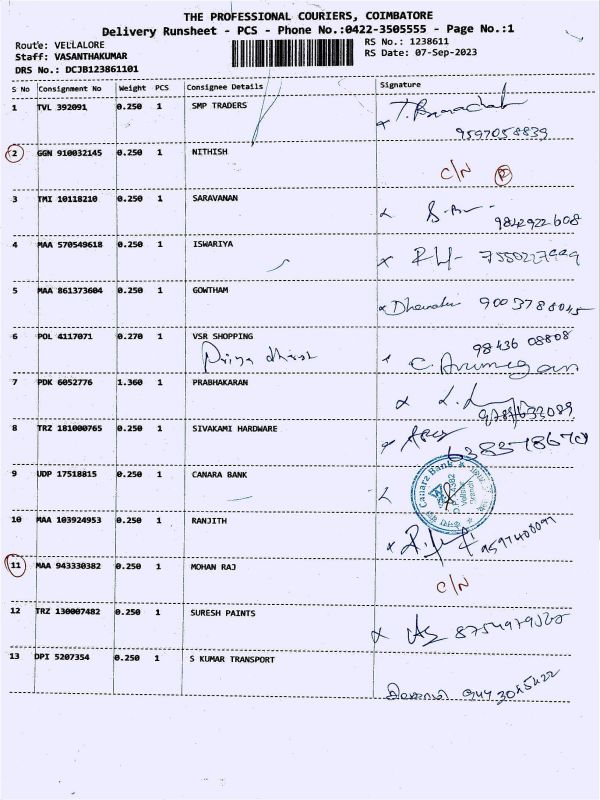 THE PROFESSIONAL COURIERS, COIMBATORE
Delivery Runsheet - PCS - Phone No.:0422-3505555 - Page No.:1
Route: VELLALORE
RS No.: 1238611
Staff: VASANTHAKUMAR
RS Date: 07-Sep-2023
DRS No.: DCJB123861101
S No Consignment No Weight PCS Consignee Details Signature
1 TVL 392091 0.250 1 SMP TRADERS
9597058839
2 GGN 910032145 0.250 1 NITHISH
C/N
3 TMI 10118210 0.250 1 SARAVANAN
9842922608
4 MAA 570549618 0.250 1 ISWARIYA
5 MAA 861373604 0.250 1 GOWTHAM
9003788045
6 POL 4117071 0.270 1 VSR SHOPPING
98436 08808
Priya
C. Arumugam
7 PDK 6052776 1.360 1 PRABHAKARAN
8 TRZ 181000765 0.250 1 SIVAKAMI HARDWARE
9 UDP 17518815 0.250 1 CANARA BANK
Canara Bank
10 MAA 103924953 0.250 1 RANJITH
11 MAA 943330382 0.250 1 MOHAN RAJ
C/N
12 TRZ 130007482 0.250 1 SURESH PAINTS
13 DPI 5207354 0.250 1 S KUMAR TRANSPORT